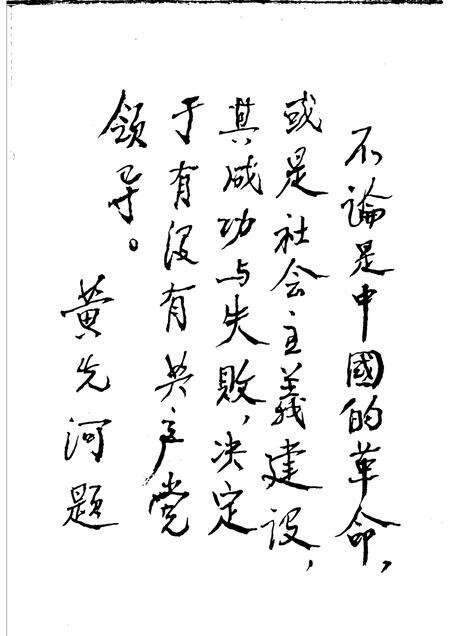 不論是中國的革命，
或是社会主義建设，
其成功与失敗，决定
于有没有共产党
领导。
黄先河题